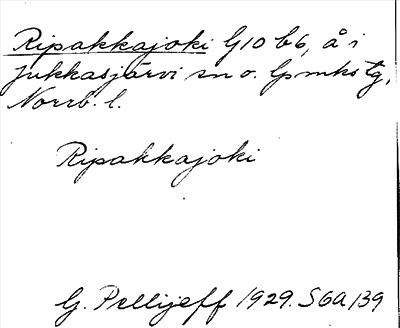 Ripakkajoki G10 b6, å i
Jukkasjärvi sn o. lpmkstg,
Norrb. l.
Ripakkajoki
G. Pellijeff 1929. S6A/39